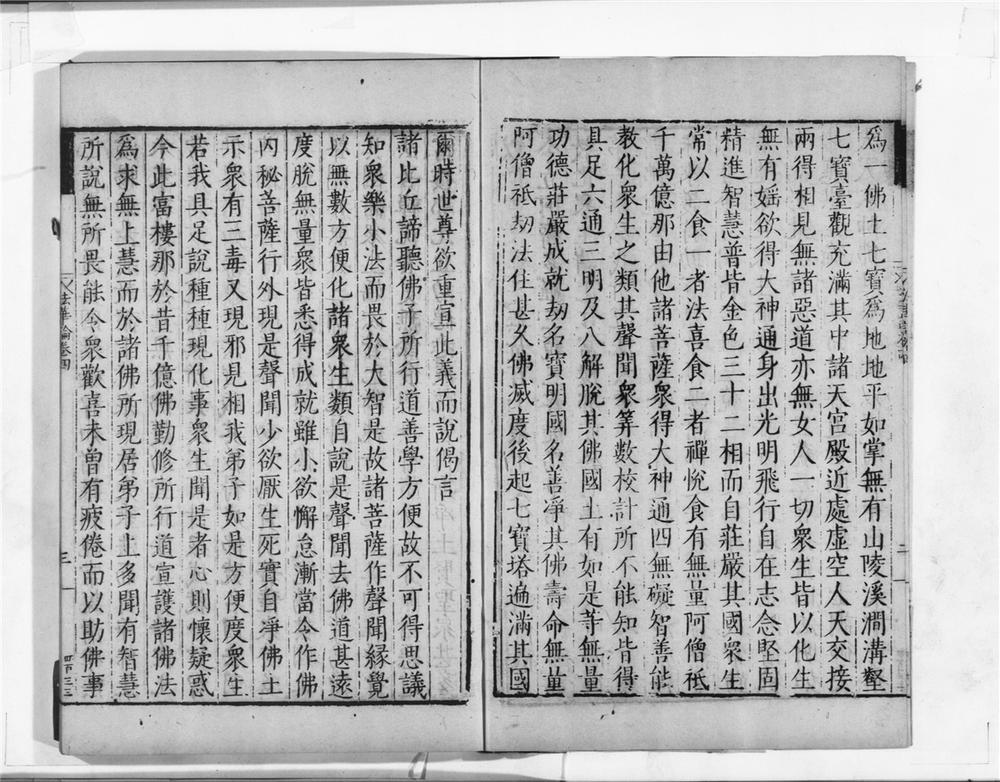 為一佛土七寶為地地平如掌無有山陵溪澗溝壑
七寶臺觀充滿其中諸天宮殿近處虛空人天交接
兩得相見無諸惡道亦無女人一切眾生皆以化生
無有婬欲得大神通身出光明飛行自在志念堅固
精進智慧普皆金色三十二相而自莊嚴其國眾生
常以二食一者法喜食二者禪悅食有無量阿僧祇
千萬億那由他諸菩薩眾得大神通四無礙智善能
教化眾生之類其聲聞眾筭數校計所不能知皆得
具足六通三明及八解脫其佛國土有如是等無量
功德莊嚴成就劫名寶明國名善淨其佛壽命無量
阿僧祇劫法住甚久佛滅度後起七寶塔遍滿其國
爾時世尊欲重宣此義而說偈言
諸比丘諦聽佛子所行道善學方便故不可得思議
知眾樂小法而畏於大智是故諸菩薩作聲聞緣覺
以無數方便化諸眾生類自說是聲聞去佛道甚遠
度脫無量眾皆悉得成就雖小欲懈怠漸當令作佛
內秘菩薩行外現是聲聞少欲厭生死實自淨佛土
示眾有三毒又現邪見相我弟子如是方便度眾生
若我具足說種種現化事眾生聞是者心則懷疑惑
今此富樓那於昔千億佛勤修所行道宣護諸佛法
為求無上慧而於諸佛所現居弟子上多聞有智慧
所說無所畏能令眾歡喜未曾有疲倦而以助佛事
三